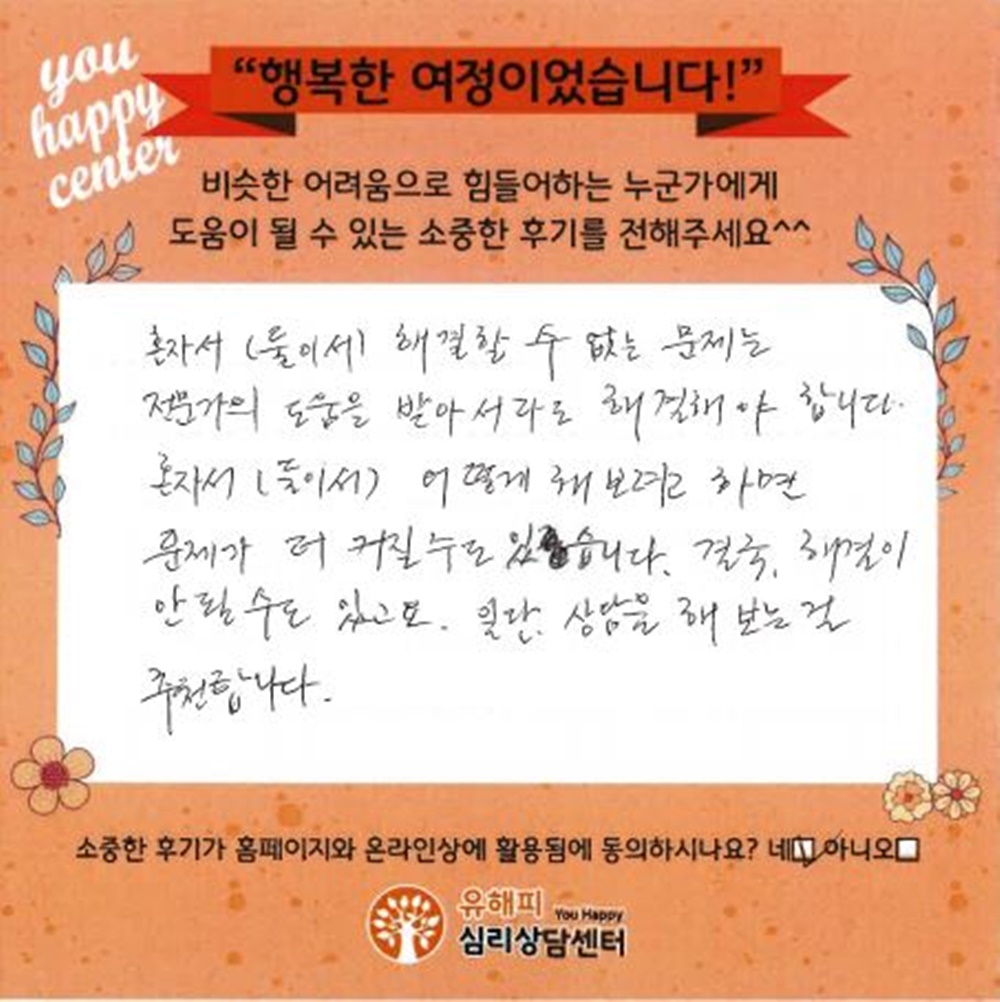 you
happy
center
“행복한 여정이었습니다!”
비슷한 어려움으로 힘들어하는 누군가에게
도움이 될 수 있는 소중한 후기를 전해주세요^^
혼자서 (둘이서) 해결할 수 없는 문제는
전문가의 도움을 받아서라도 해결해야 합니다.
혼자서 (둘이서) 어떻게 해보려고 하면
문제가 더 커질수도 있습니다. 결국, 해결이
안될 수도 있고요. 일단, 상담을 해 보는걸
추천합니다.
소중한 후기가 홈페이지와 온라인상에 활용됨에 동의하시나요? 네 아니오
유해피 You Happy
심리상담센터